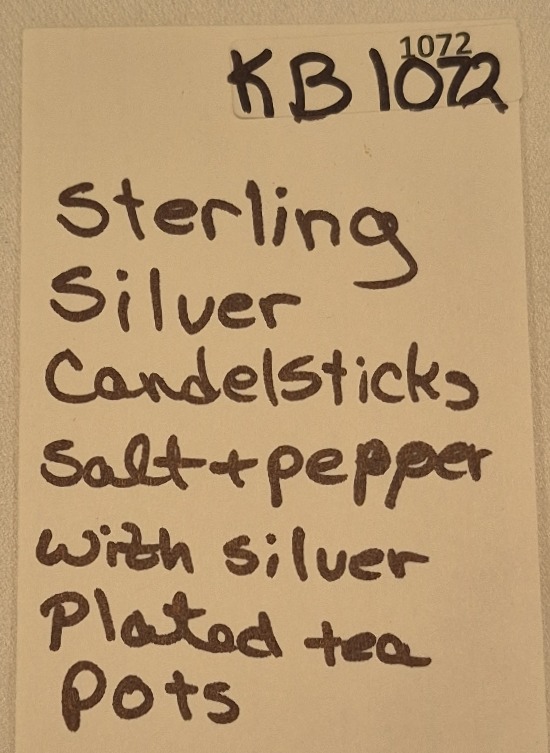 1072
KB 1072
Sterling
Silver
Candelsticks
Salt + pepper
with silver
Plated tea
Pots